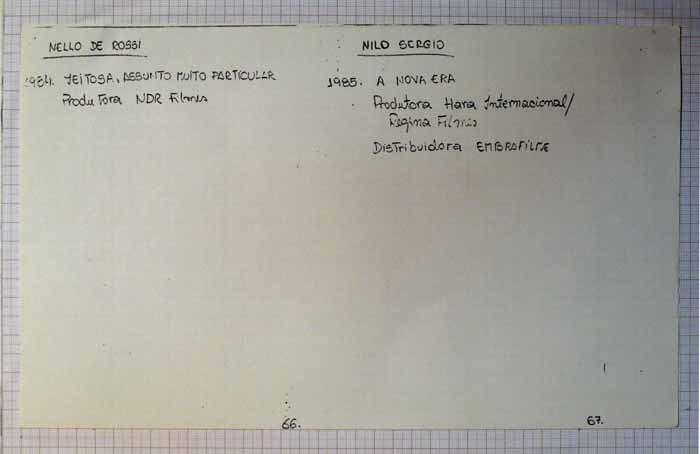 NELLO DE ROSSI
1984. JEITOSA, ASSUNTO MUITO PARTICULAR
Produtora NDR Filmes
66.
NILO SERGIO
1985. A NOVA ERA
Produtora Hara Internacional/
Regina Filmes
Distribuidora EMBRAFILME
67.